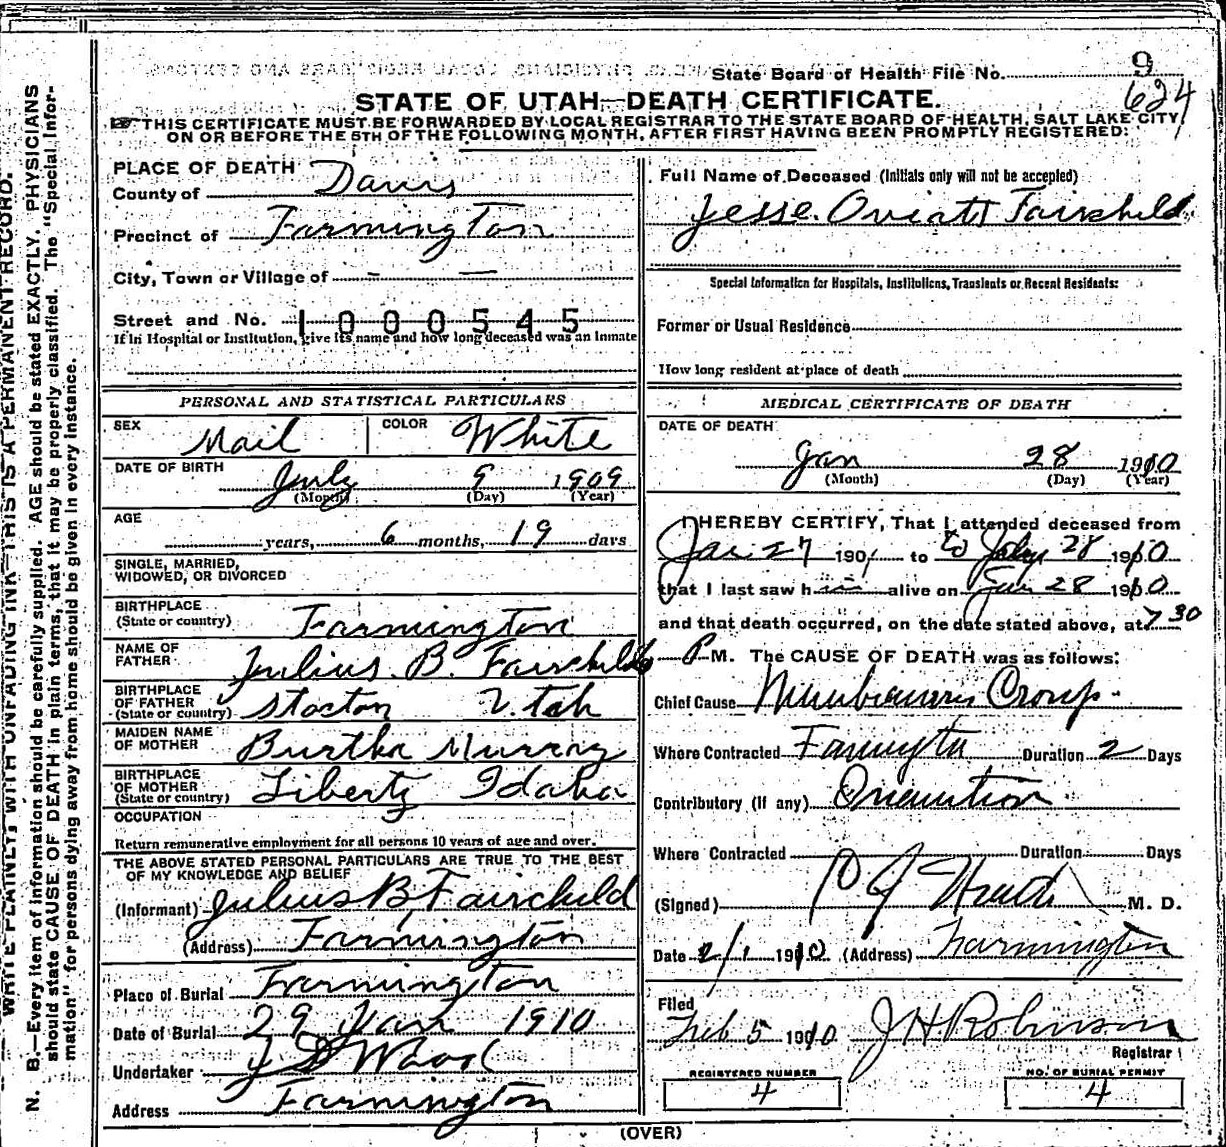 State Board of Health File No. 9
624
STATE OF UTAH—DEATH CERTIFICATE.
THIS CERTIFICATE MUST BE FORWARDED BY LOCAL REGISTRAR TO THE STATE BOARD OF HEALTH, SALT LAKE CITY,
ON OR BEFORE THE 5TH OF THE FOLLOWING MONTH, AFTER FIRST HAVING BEEN PROMPTLY REGISTERED:
WRITE PLAINLY, WITH UNFADING INK—THIS IS A PERMANENT RECORD.
N. B.—Every item of information should be carefully supplied. AGE should be stated EXACTLY. PHYSICIANS
should state CAUSE OF DEATH in plain terms, that it may be properly classified. The "Special Infor-
mation" for persons dying away from home should be given in every instance.
PLACE OF DEATH
County of Davis
Precinct of Farmington
City, Town or Village of — —
Street and No. 1000545
If in Hospital or Institution, give its name and how long deceased was an inmate
PERSONAL AND STATISTICAL PARTICULARS
SEX Mail COLOR White
DATE OF BIRTH July 9 1909
(Month) (Day) (Year)
AGE
years, 6 months, 19 days
SINGLE, MARRIED,
WIDOWED, OR DIVORCED
BIRTHPLACE
(State or country) Farmington
NAME OF
FATHER Julius. B. Fairchild
BIRTHPLACE
OF FATHER
(State or country) Stocton Utah
MAIDEN NAME
OF MOTHER Burtha Murray
BIRTHPLACE
OF MOTHER
(State or country) Liberty Idaho
OCCUPATION
Return remunerative employment for all persons 10 years of age and over.
THE ABOVE STATED PERSONAL PARTICULARS ARE TRUE TO THE BEST
OF MY KNOWLEDGE AND BELIEF
(Informant) Julius B Fairchild
(Address) Farmington
Place of Burial Farmington
Date of Burial 29 Jan 1910
Undertaker
Address Farmington
Full Name of Deceased (Initials only will not be accepted)
Jesse. Oviatt Fairchild
Special Information for Hospitals, Institutions, Transients or Recent Residents:
Former or Usual Residence
How long resident at place of death
MEDICAL CERTIFICATE OF DEATH
DATE OF DEATH
Jan 28 1910
(Month) (Day) (Year)
I HEREBY CERTIFY, That I attended deceased from
Jan 27 190 to 28 1910
that I last saw h im alive on Jan 28 1910
and that death occurred, on the date stated above, at 7 30
P M. The CAUSE OF DEATH was as follows:
Chief Cause Membranous Croup.
Where Contracted Farmington Duration 2 Days
Contributory (if any)
Where Contracted Duration Days
(Signed) M. D.
Date 2/1 1910 (Address) Farmington
Filed
Feb 5 1910 J H Robinson
Registrar
REGISTERED NUMBER
4
NO. OF BURIAL PERMIT
4
(OVER)